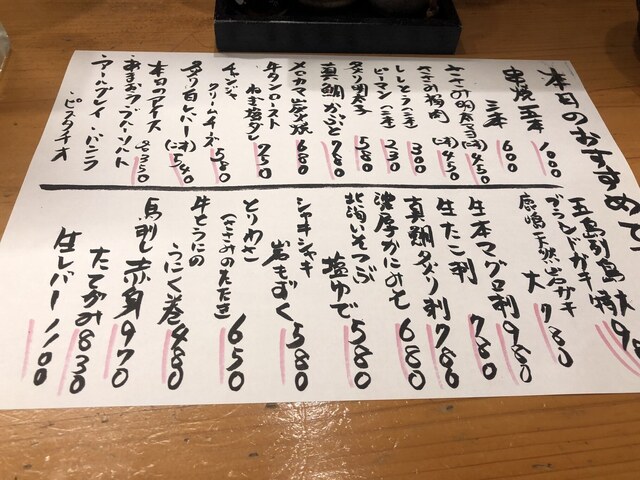 本日のおすすめで
串焼五本 1000
三本 600
ささみ明太マヨ(二本) 450
ささみ梅肉(二本) 450
ししとう(二本) 300
ピーマン(二本) 230
炙り明太子 580
真鯛かぶと 780
メカマ炭火焼 680
牛タンロースト
ねぎ塩ダレ 750
チャンジャ
クリームチーズ 580
炙り白レバー(二本) 540
本日のアイス 各350
・あまおう・ブルーハワイ
・アールグレイ・バニラ
・ピスタチオ
五島列島
ブランドガキ
大
鹿嶋天然岩ガキ
大 780
生本マグロ刺 980
生たこ刺 780
真鯛炙り刺 780
濃厚かにみそ 680
北海いそつぶ
塩ゆで 580
シャキシャキ
岩もずく 580
とりわさ
(ささみのたたき) 650
牛とうにの
うにく巻 480
馬刺し 赤身 970
たてがみ 830
生レバー 1100